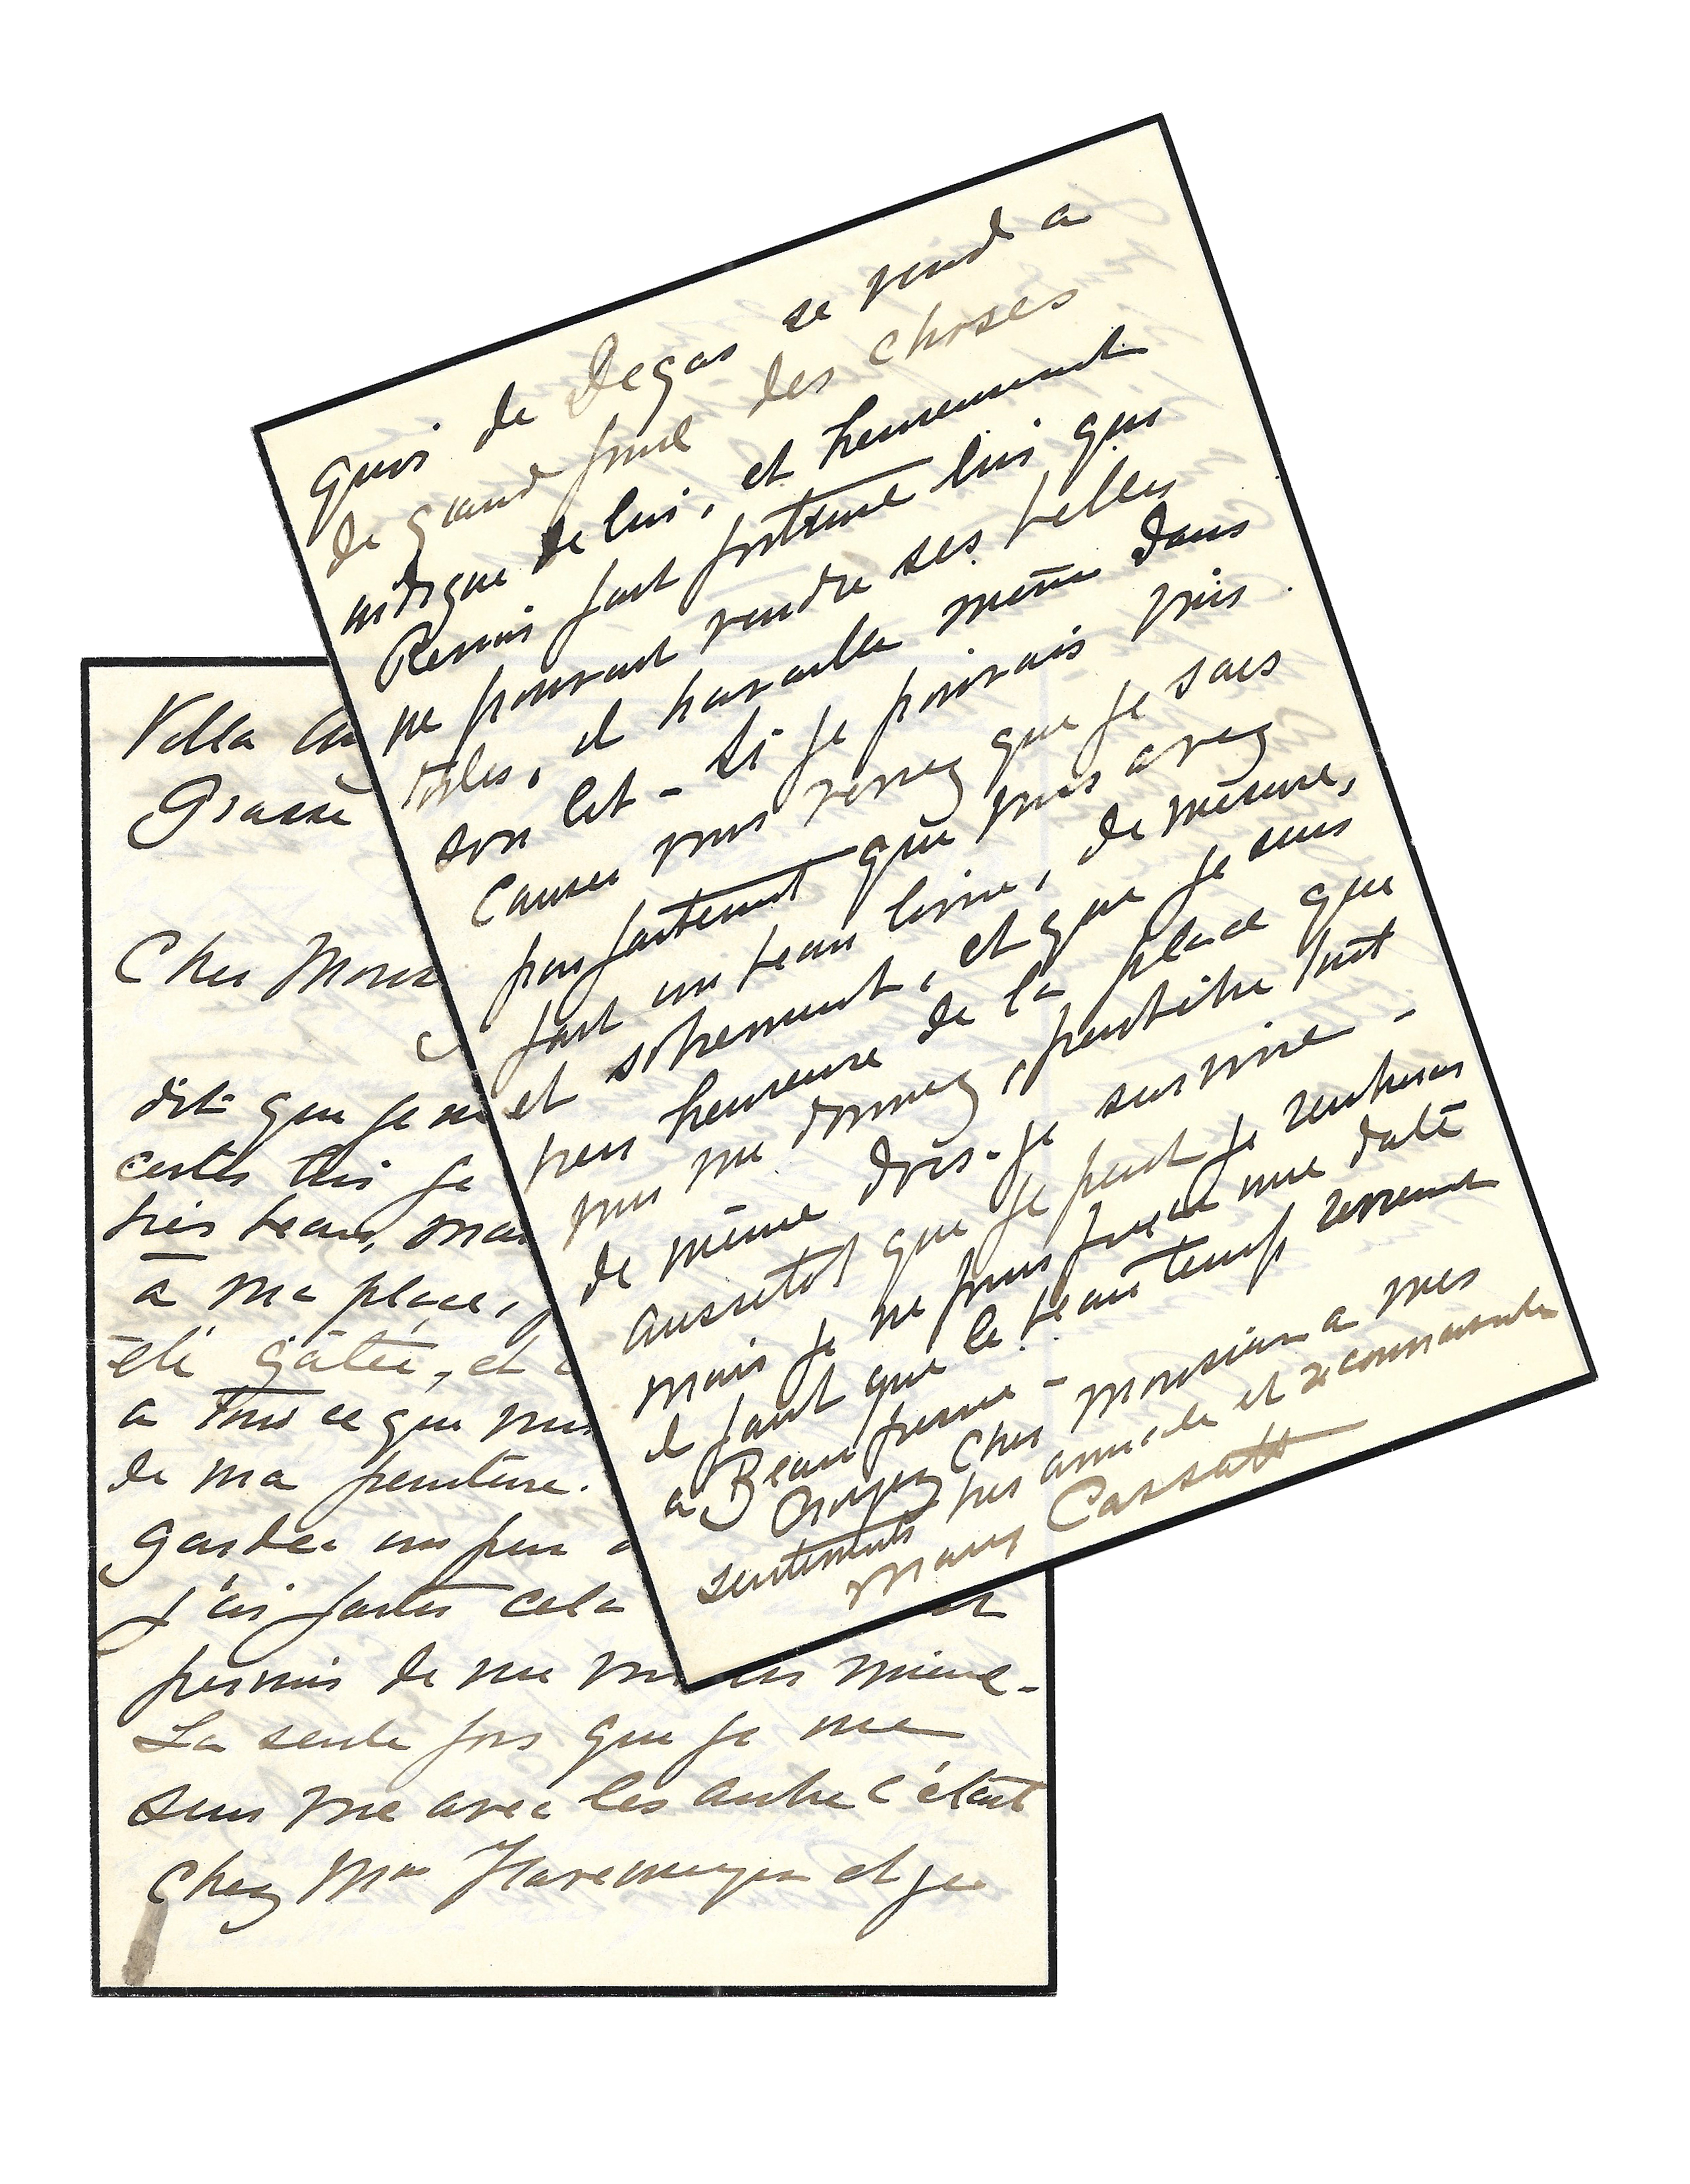 Villa
Grasse
Cher Mons
dit que je
certes
très beau, mais
à ma place,
été gâtée, et
a tous ce que vous
de ma peinture.
garder un peu
j'ai
permis de me mieux.
La seule fois que je me
suis vue avec les autre c'était
chez Mme Havemeyer et je
quoi de Degas se vend a
de grand prix des choses
indigne de lui, et heureusement
Renoir fait fortune lui qui
ne pouvait vendre ses belles
toiles, il travaille même dans
son lit – Si je pouvais
causer vous verrez que je sais
parfaitement que vous avez
fait un beau livre, de mesure,
et sobrement, et que je suis
très heureuse de la place que
vous me donnez, peutêtre tout
de même dois-je survivre –
aussitot que je peut je rentrerai
mais je ne puis fixer une date
il faut que le beau temps revienne
a Beaufresne –
Croyez Cher Monsieur a mes
sentiments très amicale et reconnaissante
Mary Cassatt